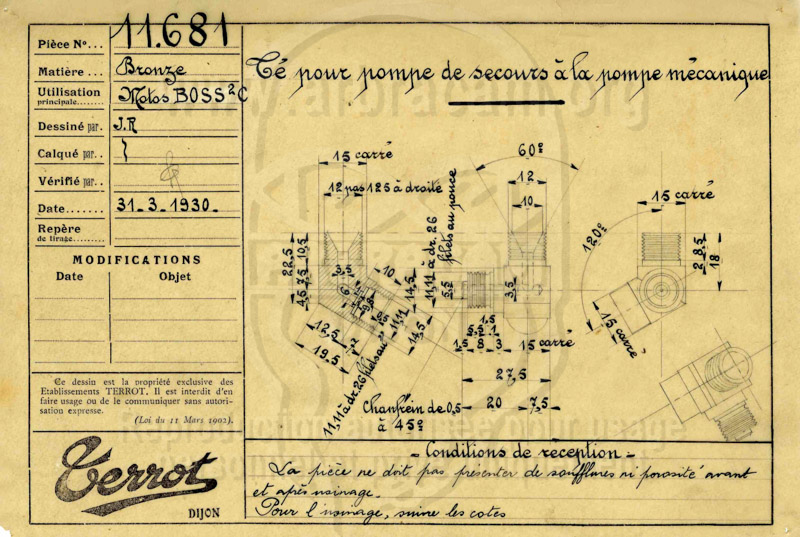 Pièce Nº... 11.681
Matière... Bronze
Utilisation
principale........ Motos BOSS²C
Dessiné par. J.R
Calqué par..
Vérifié par..
Date....... 31-3-1930-
Repère
de tirage........
MODIFICATIONS
Date Objet
Ce dessin est la propriété exclusive des
Etablissements TERROT. Il est interdit d'en
faire usage ou de le communiquer sans autori-
sation expresse.
(Loi du 11 Mars 1902).
Terrot
DIJON
Té pour pompe de secours à la pompe mécanique
15 carré
12 pas 125 à droite
22,5
10,5
7,5
4,5
3,5
10
14,5
11,11
14,5
12,5
19,5
11,11 à dr. 26 filets au"
Chanfrein de 0,5
à 45º
60º
12
10
11,11 à dr. 26
filets au pouce
5,5
3,5
1,5
5,5 1
1,5 8 3 15 carré
27,5
20 7,5
15 carré
120º
2 8,5
18
15 carré
- Conditions de reception -
La pièce ne doit pas présenter de soufflures ni porosité avant
et après usinage.
Pour l'usinage, suivre les cotes